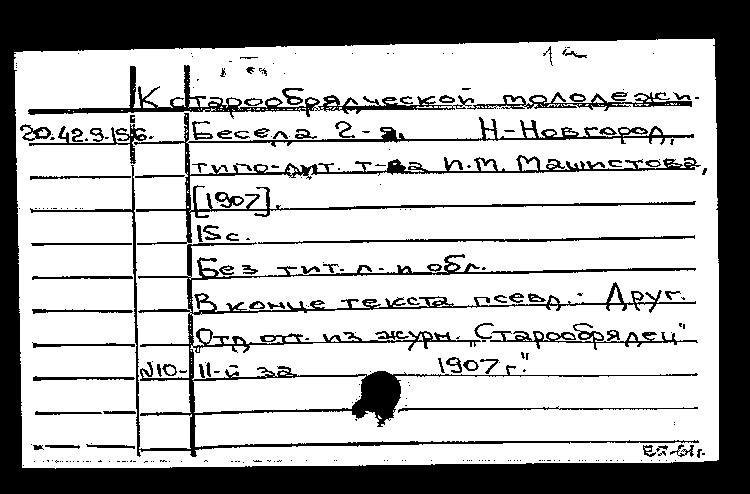 К старообрядческой молодежи.
20.42.9.156. Беседа 2-я. Н-Новгород,
типо-лит. т-ва И.М. Машистова,
[1907].
15 с.
Без тит. л. и обл.
В конце текста псевд.: Друг.
"Отд. отт. из журн. "Старообрядец"
N10-11-й за 1907 г."